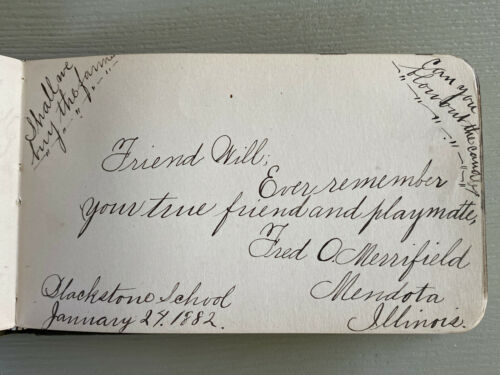 Shall we
buy the farm
Can you
blow out the candle
Friend Will;
Ever remember
your true friend and playmate,
Fred O. Merrifield
Mendota
Illinois.
Blackstone School
January 24. 1882.